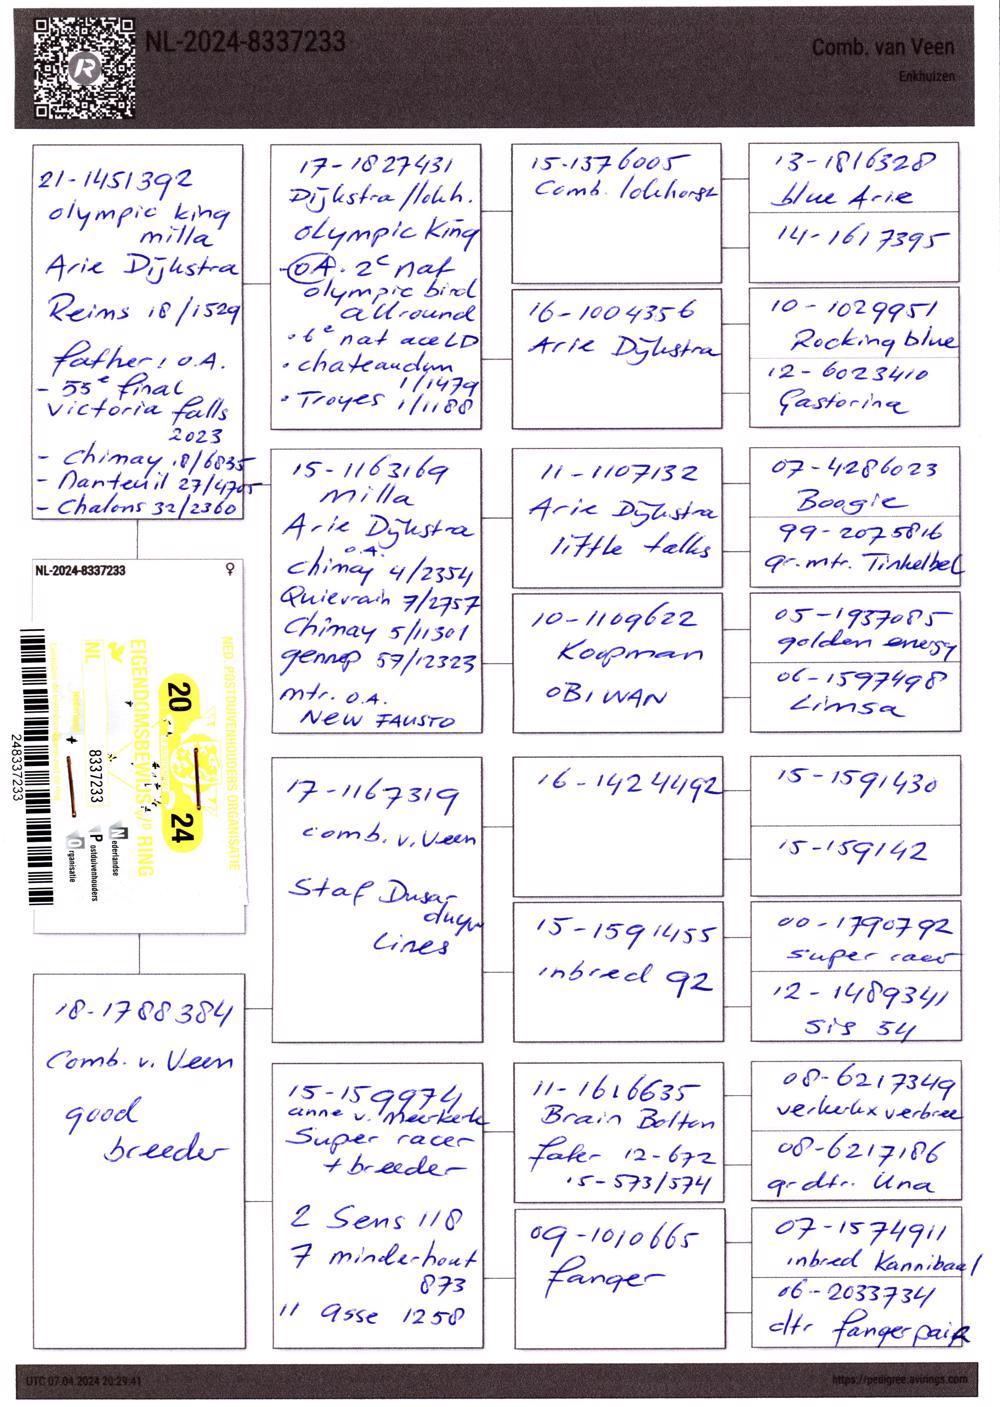 NL-2024-8337233
Comb. van Veen
Enkhuizen
21-1451392
olympic king
milla
Arie Dijkstra
Reims 18/1529
father: O.A.
- 55e final
victoria falls
2023
- Chimay 18/6835
- Nanteuil 27/4705
- Chalons 32/2360
17-1827431
Dijkstra/lokh.
Olympic King
OA. 2e naf
olympic bird
allround
• 6e nat ace LD
• chateaudun
1/1479
• Troyes 1/1188
15-1376005
Comb. lokhorst
13-1816328
blue Arie
14-1617395
16-1004356
Arie Dijkstra
10-1029951
Rocking blue
12-6023410
Gastorina
15-1163169
Milla
Arie Dijkstra
O.A.
Chimay 4/2354
Quievrain 7/2757
Chimay 5/11301
gennep 57/12323
mtr. O.A.
NEW FAUSTO
11-1107132
Arie Dijkstra
little talks
07-4286023
Boogie
99-2075816
gr.mtr. Tinkelbel
10-1109622
Koopman
OBIWAN
05-1937085
golden energy
06-1597498
Limsa
NL-2024-8337233
♀
NED. POSTDUIVENHOUDERS ORGANISATIE
EIGENDOMSBEWIJS V/D RING
20 24
NL
8337233
Nederlandse
Postduivenhouders
Organisatie
248337233
17-1167319
comb. v. Veen
Staf Dusar
duyn
lines
16-1424492
15-1591430
15-159142
15-1591455
inbred 92
00-1790792
super racer
12-1489341
sis 54
18-1788384
Comb. v. Veen
good
breeder
15-159974
anne v. Meerkerk
Super racer
+ breeder
2 Sens 118
7 minderhout
873
11 Asse 1258
11-1616635
Brain Bolton
fafer 12-672
15-573/574
08-6217349
verkerkx verbree
08-6217186
gr.dtr. Una
09-1010665
fanger
07-1574911
inbred Kannibaal
06-2033734
dtr fangerpair
UTC 07.04.2024 20:29:41
https://pedigree.avirings.com